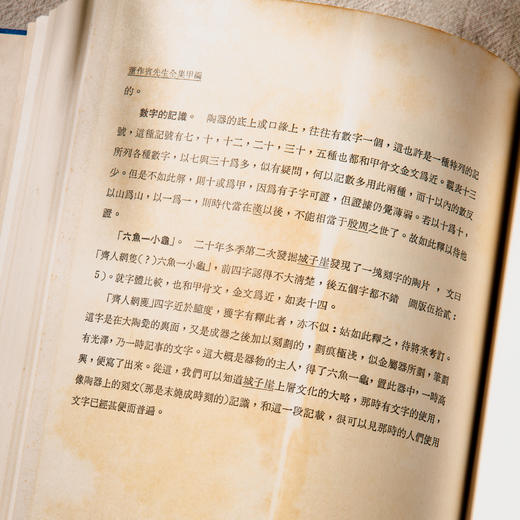 董作賓先生全集甲編
的。
數字的記識。 陶器的底上或口緣上，往往有數字一個，這也許是一種特列的記
號，這種記號有七，十，十二，二十，三十，五種也都和甲骨文金文為近。觀表十三
所列各種數字，以七與三十爲多，似有疑問，何以記數多用此兩種，而十以內的數反
少。但是不如此解，則十或爲甲，因爲有子字可證，但證據仍覺薄弱。若以十爲十，
以山爲山，以一爲一，則時代當在漢以後，不能相當于殷周之世了。故如此釋以待他
證。
「六魚一小龜」。 二十年冬季第二次發掘城子崖發現了一塊刻字的陶片，文曰
「齊人網隻（？）六魚一小龜」，前四字認得不大清楚，後五個字都不錯 圖版伍拾貳：
5）。就字體比較，也和甲骨文，金文爲近，如表十四。
「齊人網獲」四字近於臆度，獲字有釋此者，亦不似：姑如此釋之，待將來考訂。
這字是在大陶瓷的裏面，又是成器之後加以刻劃的，劃痕極淺，似金屬器所劃，筆劃
有光澤，乃一時記事的文字。這大概是器物的主人，得了六魚一龜，置此器中，一時高
興，便寫了出來。從這，我們可以知道城子崖上層文化的大略，那時有文字的使用，
像陶器上的刻文(那是未燒成時刻的)記識，和這一段記載，很可以見那時的人們使用
文字已經甚便而普遍。